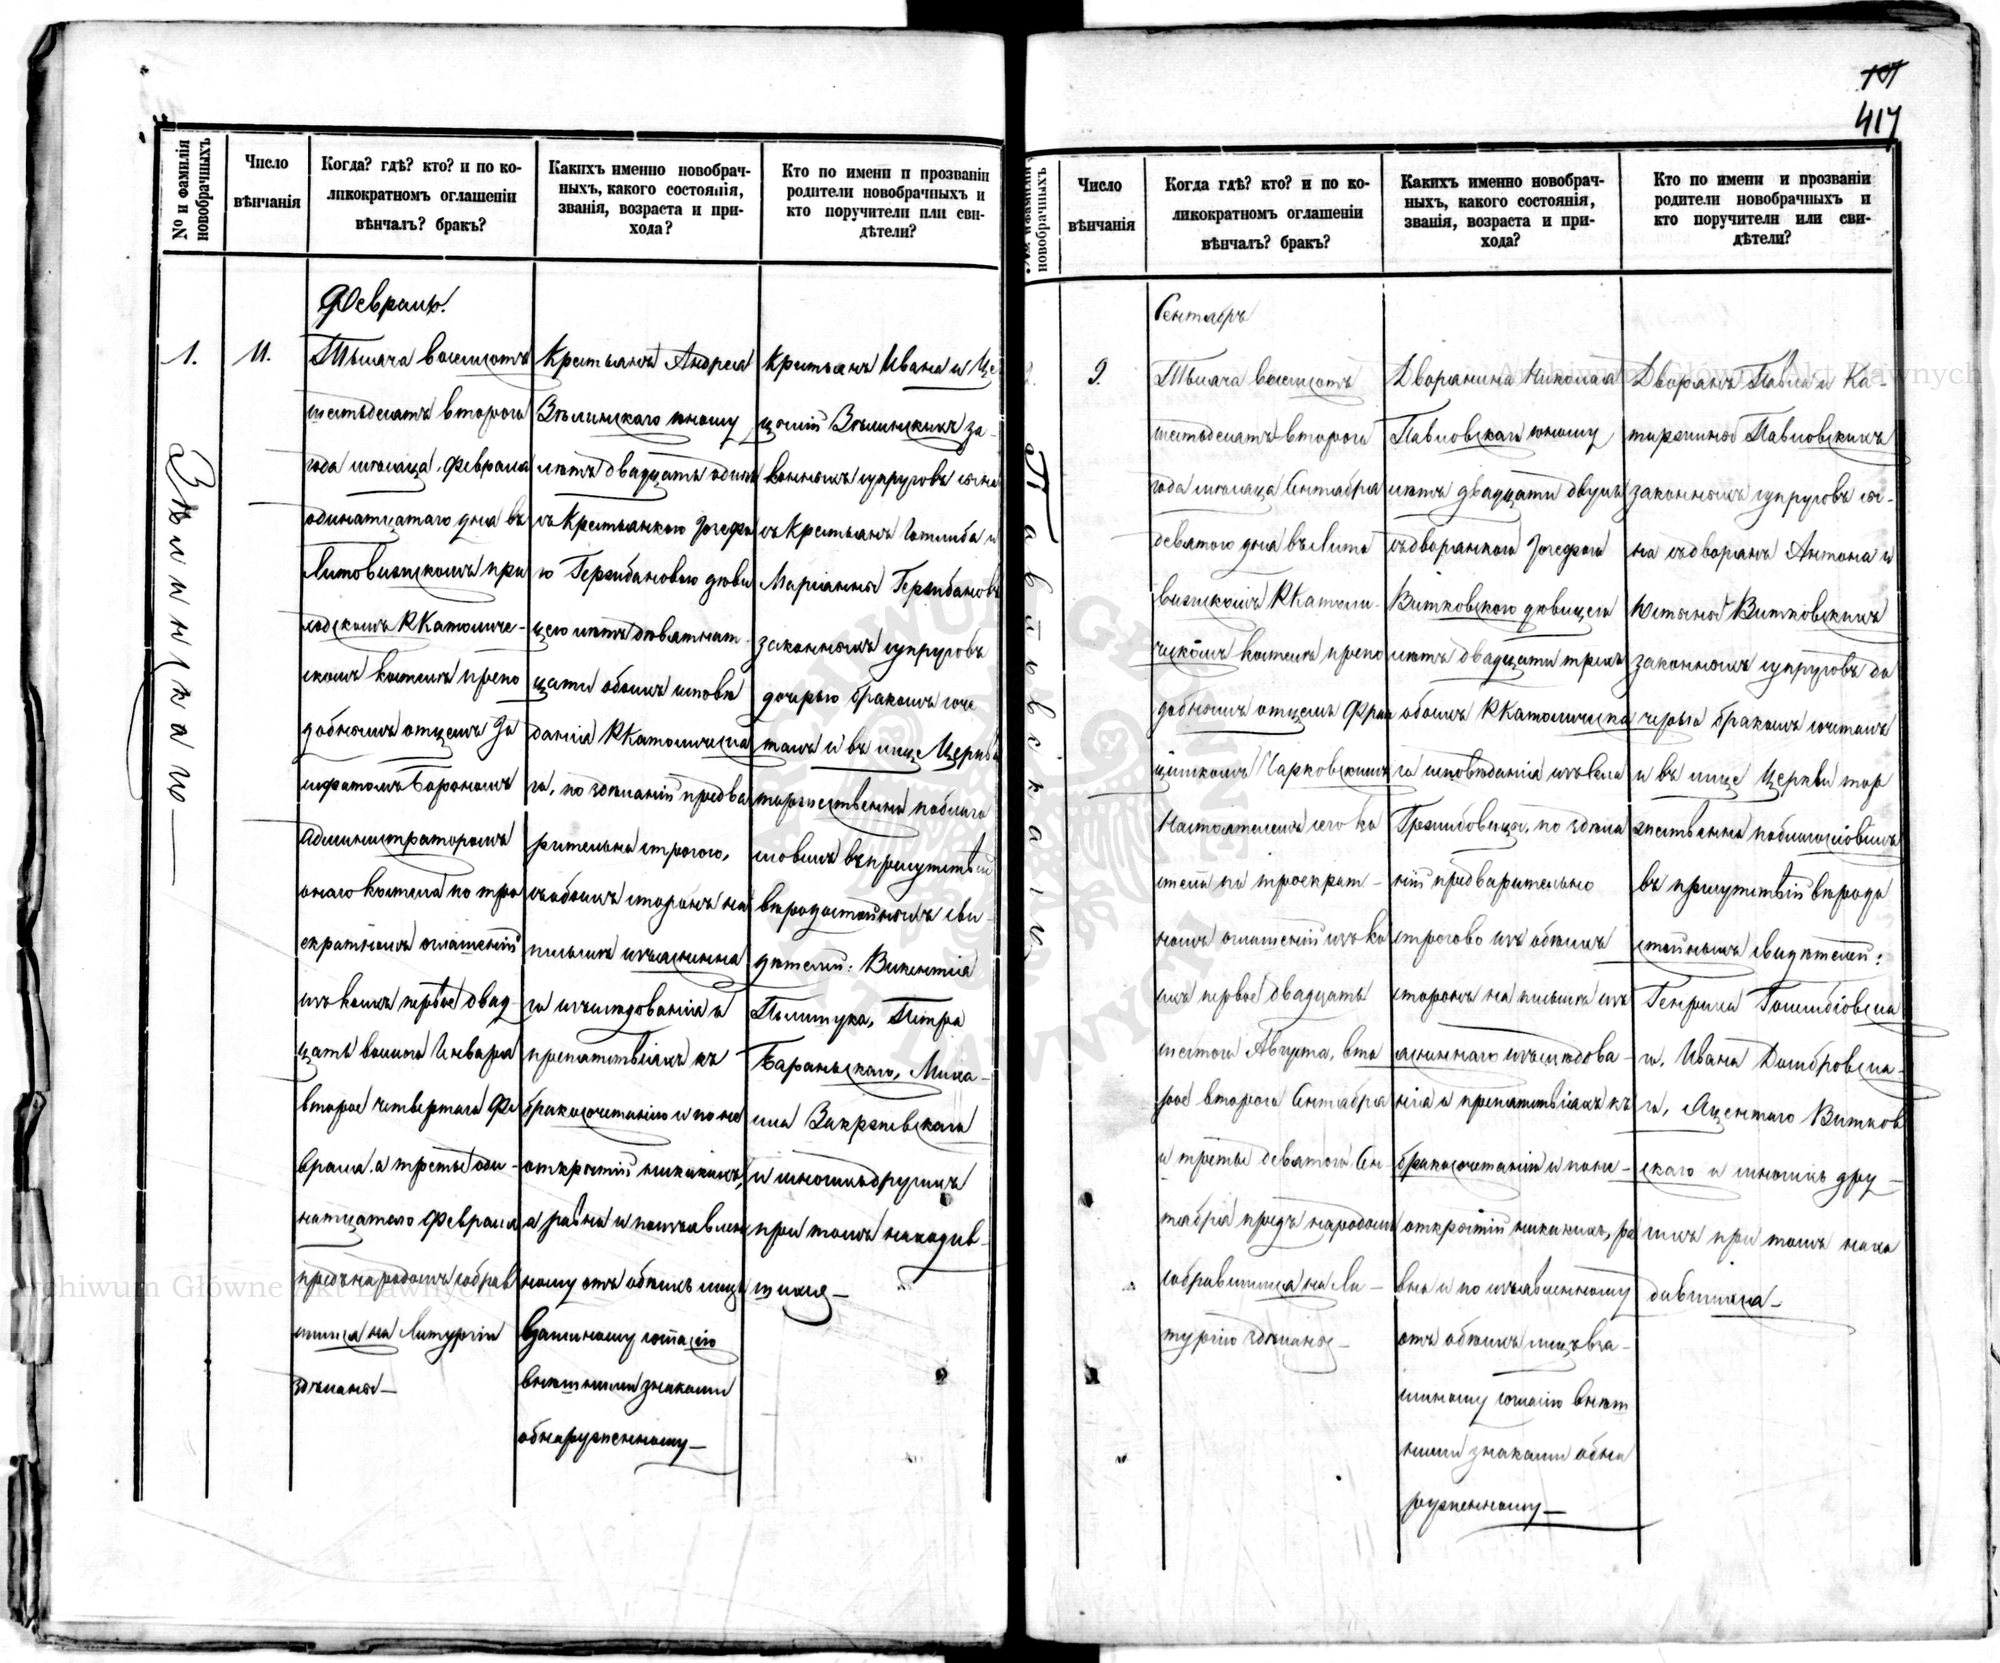 107
417
№ и фамилія новобрачныхъ
Число вѣнчанія
Когда? гдѣ? кто? и по ко-
ликократномъ оглашеніи
вѣнчалъ? бракъ?
Какихъ именно новобрач-
ныхъ, какого состоянія,
званія, возраста и при-
хода?
Кто по имени и прозваніи
родители новобрачныхъ и
кто поручители или сви-
дѣтели?
1.
11.
Февраль.
Тысяча восемсотъ
шестьдесятъ втораго
года мѣсяца Февраля
одинатцатаго дня въ
Литовижскомъ при
ходскомъ РКатоличе-
скомъ костелѣ препо
добнымъ отцемъ Іо
Барономъ
Администраторомъ
онаго костела по трое
кратномъ оглашеніи
изъ коихъ первое двад-
цать Января
второе четвертаго Фе
враля, а третье оди-
натцатаго Февраля
предъ народомъ собрав
шимся на Литургіи
здѣланы—
Крестьянъ Андрея
Зѣлинскаго юношу
лѣтъ двадцать одинъ
съ Крестьянкою Іозефо
ю Герзибановою дѣви
цею лѣтъ девятнат-
цати обоихъ исповѣ
данія РКатолическа
го, по здѣланіи предва
рительно строгого,
съ обоихъ сторонъ на
письмѣ изъясненна
го изъслѣдованія о
препятствіяхъ къ
бракосочетанію и по не
открытіи никакихъ,
а равно и по изъявлен
ному отъ обоихъ лицъ
взаимному согласію
внѣшними знаками
обнаруженному—
Крестьянъ Ивана и Це
циліи Зѣлинскихъ за-
конныхъ супруговъ сына
съ Крестьянъ Готлиба и
Маріанны Герзибановъ
законныхъ супруговъ
дочерью бракомъ соче
талъ и въ лице Церкви
торжественно поблаго
словилъ въ присутствіи
вѣродостойныхъ сви-
дѣтелей: Викентія
Полищука, Петра
Бараньскаго, Миха-
ила Закржевскаго
и многихъ другихъ
при томъ находив-
шихся—
Зѣлинскаго
№ и фамилія новобрачныхъ
Число вѣнчанія
Когда гдѣ? кто? и по ко-
ликократномъ оглашеніи
вѣнчалъ? бракъ?
Какихъ именно новобрач-
ныхъ, какого состоянія,
званія, возраста и при-
хода?
Кто по имени и прозваніи
родители новобрачныхъ и
кто поручители или сви-
дѣтели?
2.
9.
Сентябрь
Тысяча восемсотъ
шестьдесятъ втораго
года мѣсяца Сентября
девятаго дня въ Лито
вижскомъ РКатоли-
ческомъ костелѣ препо
добнымъ отцемъ Фран
цишкомъ Чарковскимъ
Настоятелемъ сего ко
стела по троекрат-
номъ оглашеніи изъ ко
ихъ первое двадцать
шестого Августа, вто
рое второго Сентября
и третье девятого Сен-
тября предъ народомъ
собравшимся на Ли-
тургію здѣланы—
Дворянина Николая
Павловскаго юношу
лѣтъ двадцати двухъ
съ дворянкою Іозефою
Витковскою дѣвицею
лѣтъ двадцати трехъ
обоихъ РКатолическа
го исповѣданія изъ села
Гржибовицы, по здѣла
ніи предварительно
строгово изъ обоихъ
сторонъ на письмѣ изъ
ясненнаго изъслѣдова-
нія о препятствіяхъ къ
бракосочетанію и по не-
открытіи никакихъ, ра
вно и по изъявленному
отъ обоихъ лицъ вза-
имному согласію внѣш
ними знаками обна
руженному—
Дворянъ Павла и Ка-
таржины Павловскихъ
законныхъ супруговъ сы-
на съ дворянъ Антона и
Юстыны Витковскихъ
законныхъ супруговъ до
черью бракомъ сочеталъ
и въ лице Церкви тор
жественно поблагословилъ
въ присутствіи вѣродо
стойныхъ свидѣтелей:
Генриха Голембіовска
го, Ивана Домбровска-
го, Яцентаго Витков
скаго и многихъ дру-
гихъ при томъ нахо
дившихся—
Павловскаго
Archiwum Główne Akt Dawnych
Archiwum Główne Akt Dawnych
ARCHIWUM GŁÓWNE AKT DAWNYCH